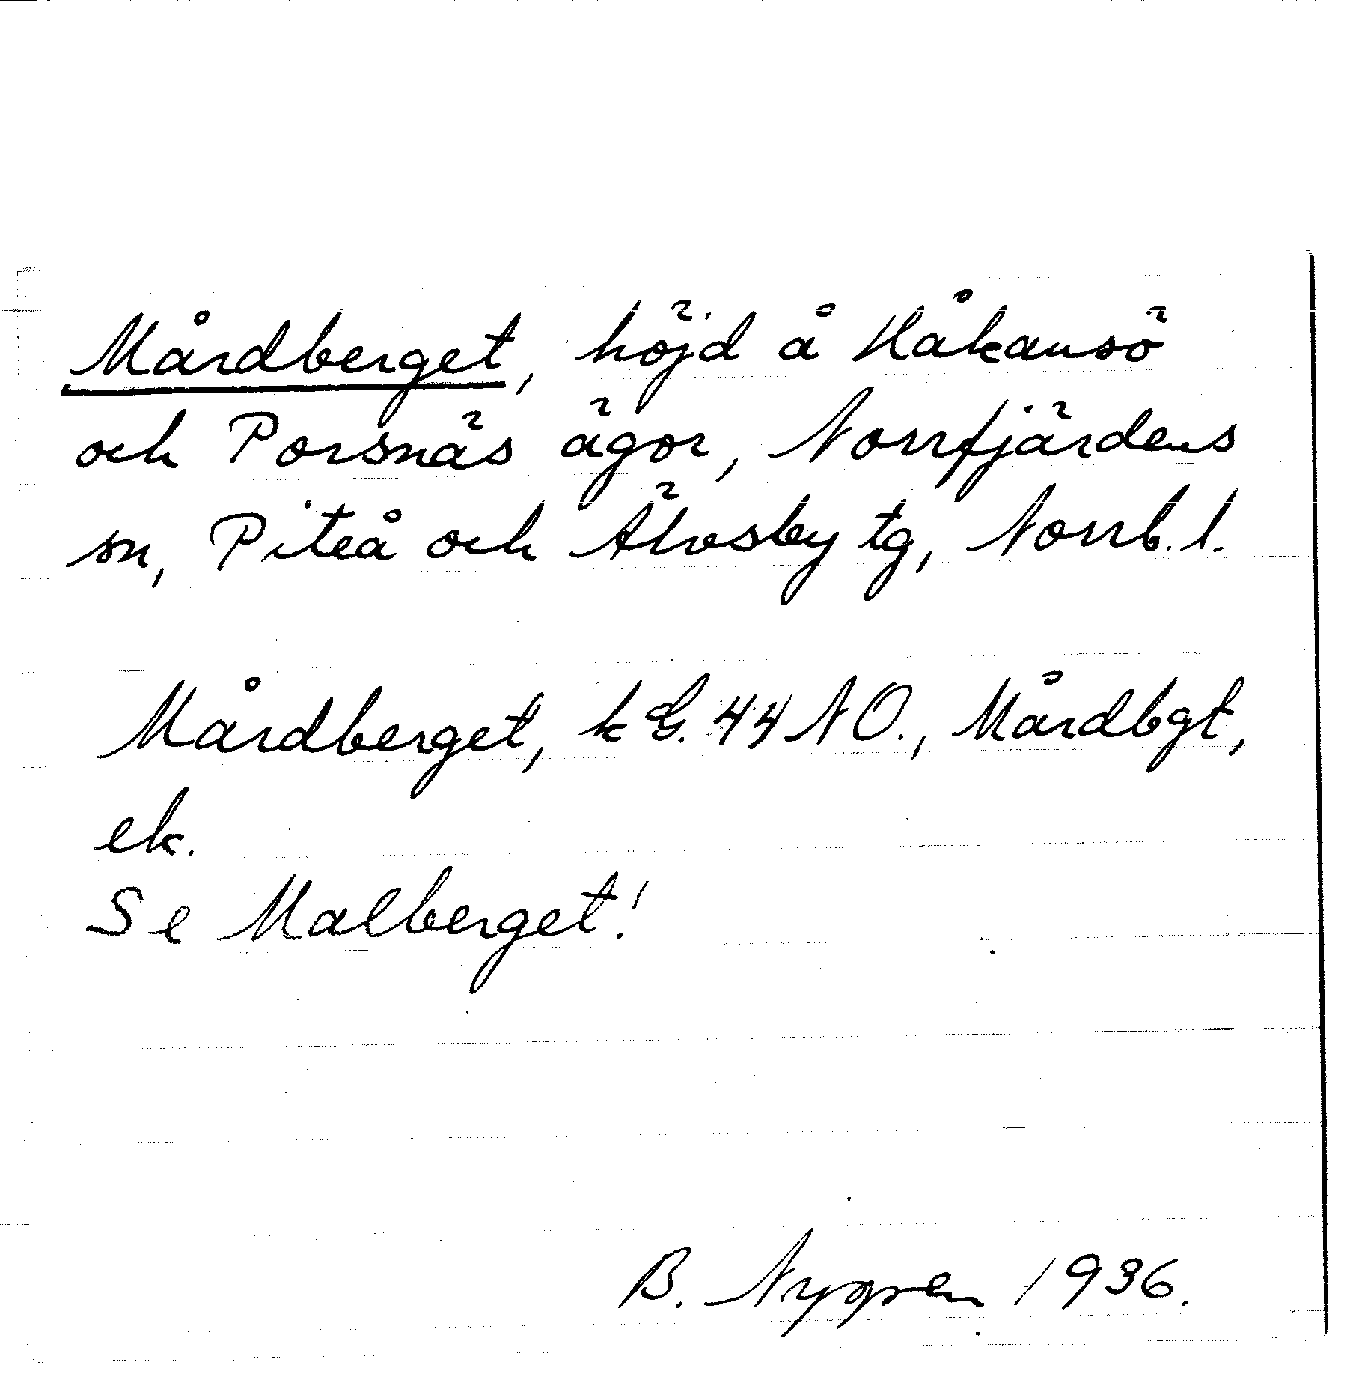 Mårdberget, höjd å Håkansö
och Porsnäs ägor, Norrfjärdens
sn, Piteå och Älvsby tg, Norrb.l.
Mårdberget, k G. 44 NO., Mårdbgt,
ek.
Se Malberget!
B. Nygren 1936.